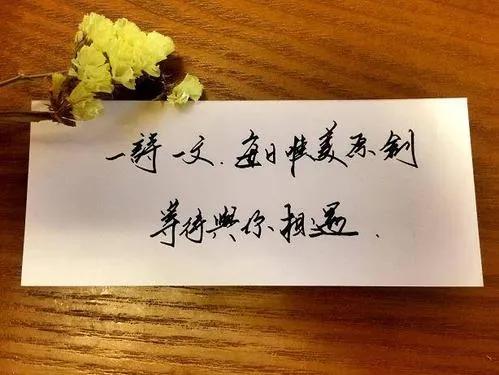 一詩一文.每日唯美原創
等待與你相遇.